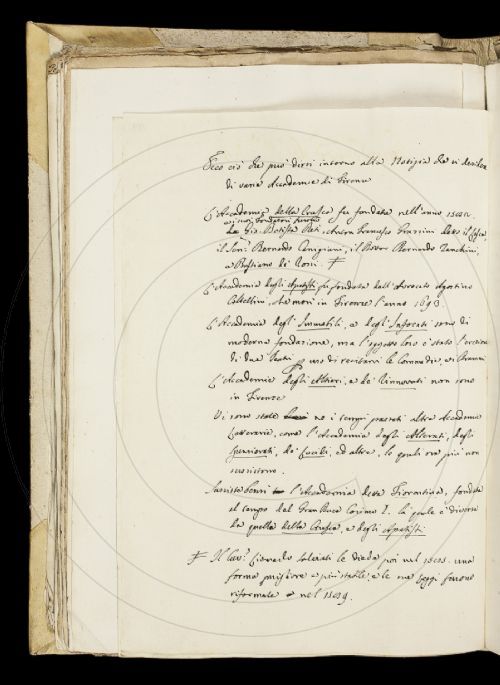 Ecco ciò che può dirsi intorno alla Notizia che si desidera
di varie Accademie di Firenze
L'Accademia della Crusca fu fondata nell'anno
e i suoi fondatori furono
Gio. Batista Deti, Anton Francesco Grazzini detto il Lasca,
il Bernardo Canigiani, il Bernardo Zanchini,
e Bastiano de Rossi ‡
L'Accademia degli Apatisti fu fondata dall'Avvocato Agostino
Coltellini, che morì in Firenze l'anno 1693.
L'Accademia degl' Immobili, e degl' Infocati sono di
moderna fondazione, ma l'oggetto loro è stato l'erezione
di due Teatri per uso di recitarvi le Commedie, e i Drammi
L'Accademie degli Alterati, e de' Rinnovati non sono
in Firenze
Vi sono state ne i tempi passati altre Accademie
Letterarie, come l'Accademia degli Alterati, degli
Svogliati, de' Lucidi, ed altre, le quali ora più non
sussistono.
Sussiste bensì l'Accademia detta Fiorentina, fondata
al tempo del Gran Duca Cosimo I. la quale è diversa
da quella della Crusca, e degli Apatisti
‡ Il Cav. Lionardo Salviati le diede poi nel una
forma migliore e più stabile, e le sue Leggi furono
riformate nel